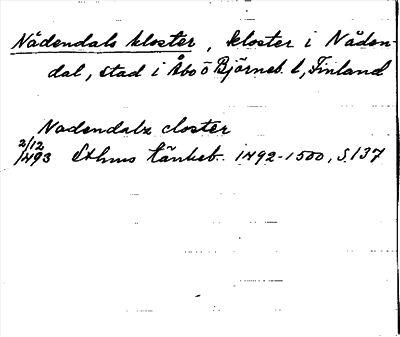 Nådendals kloster, kloster i Nåden-
dal, stad i Åbo o Björneb. l, Finland
Nadendalz closter
2/12 1493 Sthms tänkeb. 1492-1500, S.137